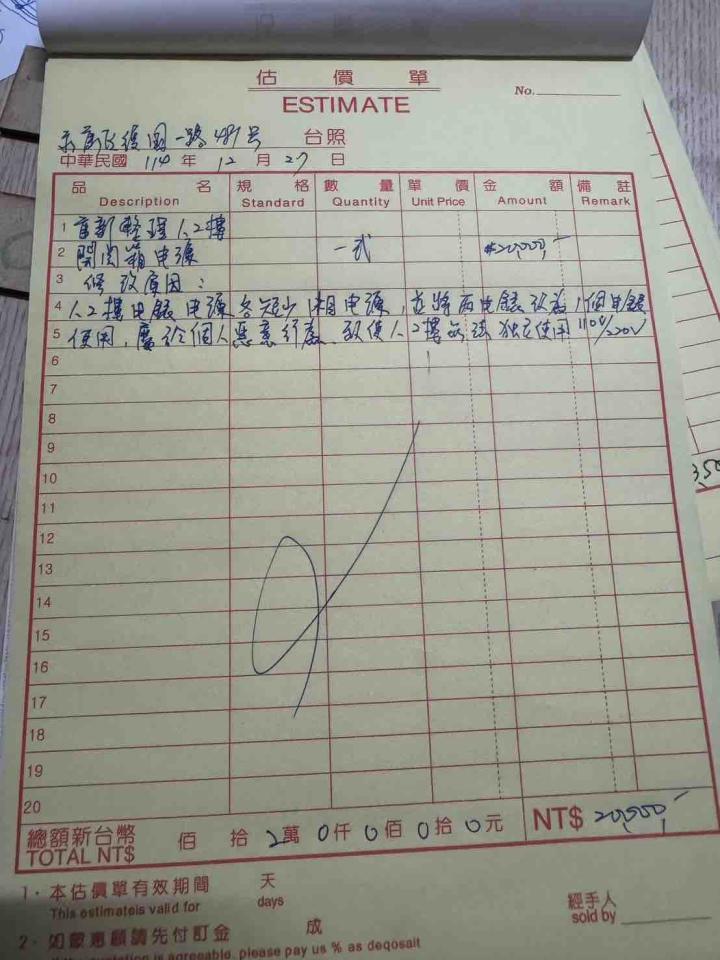 估價單
ESTIMATE
No.
護國一路487号 台照
中華民國 114 年 12 月 27 日
品名 規格 數量 單價 金額 備註
Description Standard Quantity Unit Price Amount Remark
1 重新整理1.2樓
2 開関箱电源 一式 #20,000,-
3 修改原因：
4 1.2樓电錶电源各短少1相电源，並將兩电錶改為1個电錶
5 使用，屬於個人惡意行為，致使1.2樓無法独立使用110V/220V
6
7
8
9
10
11
12
13
14
15
16
17
18
19
20
總額新台幣 佰 拾 2萬 0仟 0佰 0拾 0元 NT$ 20,000,-
TOTAL NT$
1．本估價單有效期間 天
This estimateis valid for days
經手人
sold by
2．如蒙惠顧請先付訂金 成
quotation is agreeable, please pay us % as deqosait